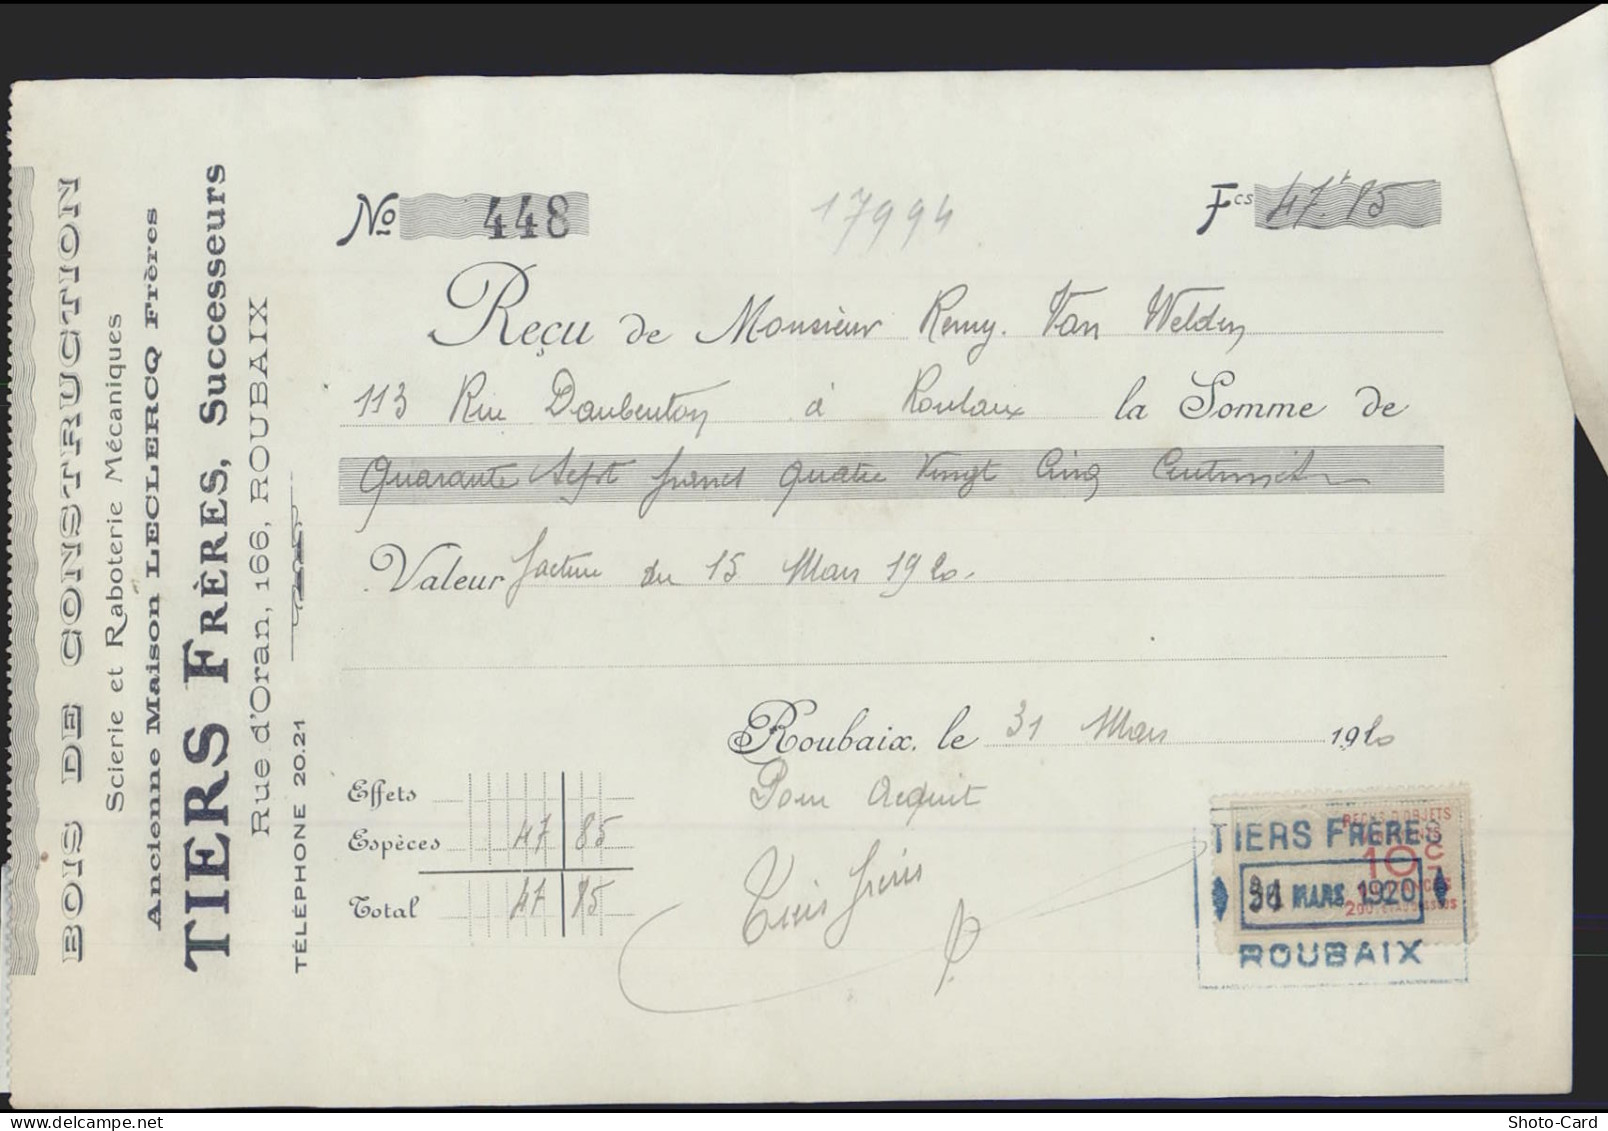 BOIS DE CONSTRUCTION
Scierie et Raboterie Mécaniques
Ancienne Maison LECLERCQ Frères
TIERS FRÈRES, Successeurs
Rue d'Oran, 166, ROUBAIX
TÉLÉPHONE 20.21
No 448
17994
Fcs 47f.85
Reçu de Monsieur Remy. Van Welden
113 Rue Daubenton à Roubaix la Somme de
Quarante Sept francs quatre Vingt Cinq Centimes
Valeur facture du 15 Mars 1920.
Roubaix, le 31 Mars 1920
Effets
Espèces 47 85
Total 47 85
Pour Acquit
Tiers frères
REÇUS D'OBJETS
10c
TIERS FRERES
MARS 1920
ROUBAIX
Shoto-Card